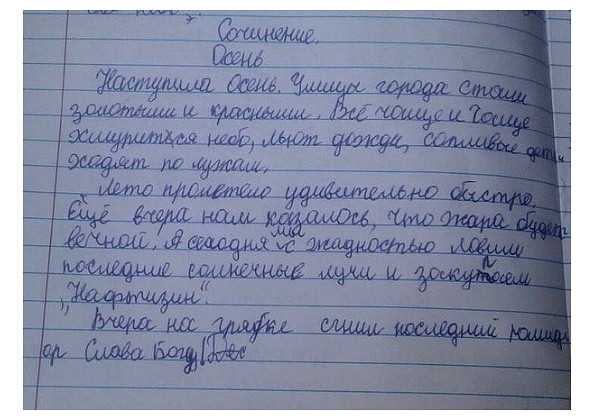 Сочинение.
Осень
Наступила Осень. Улицы города стали
золотыми и красными. Всё чаще и чаще
хмуриться небо, льют дожди, сопливые дети
ходят по лужам.
Лето пролетело удивительно быстро.
Ещё вчера нам казалось, что жара будет
вечной. А сегодня мы с жадностью ловим
последние солнечные лучи и закупаем
„Нафтизин“.
Вчера на грядке сгнил последний помид
ор Слава Богу!